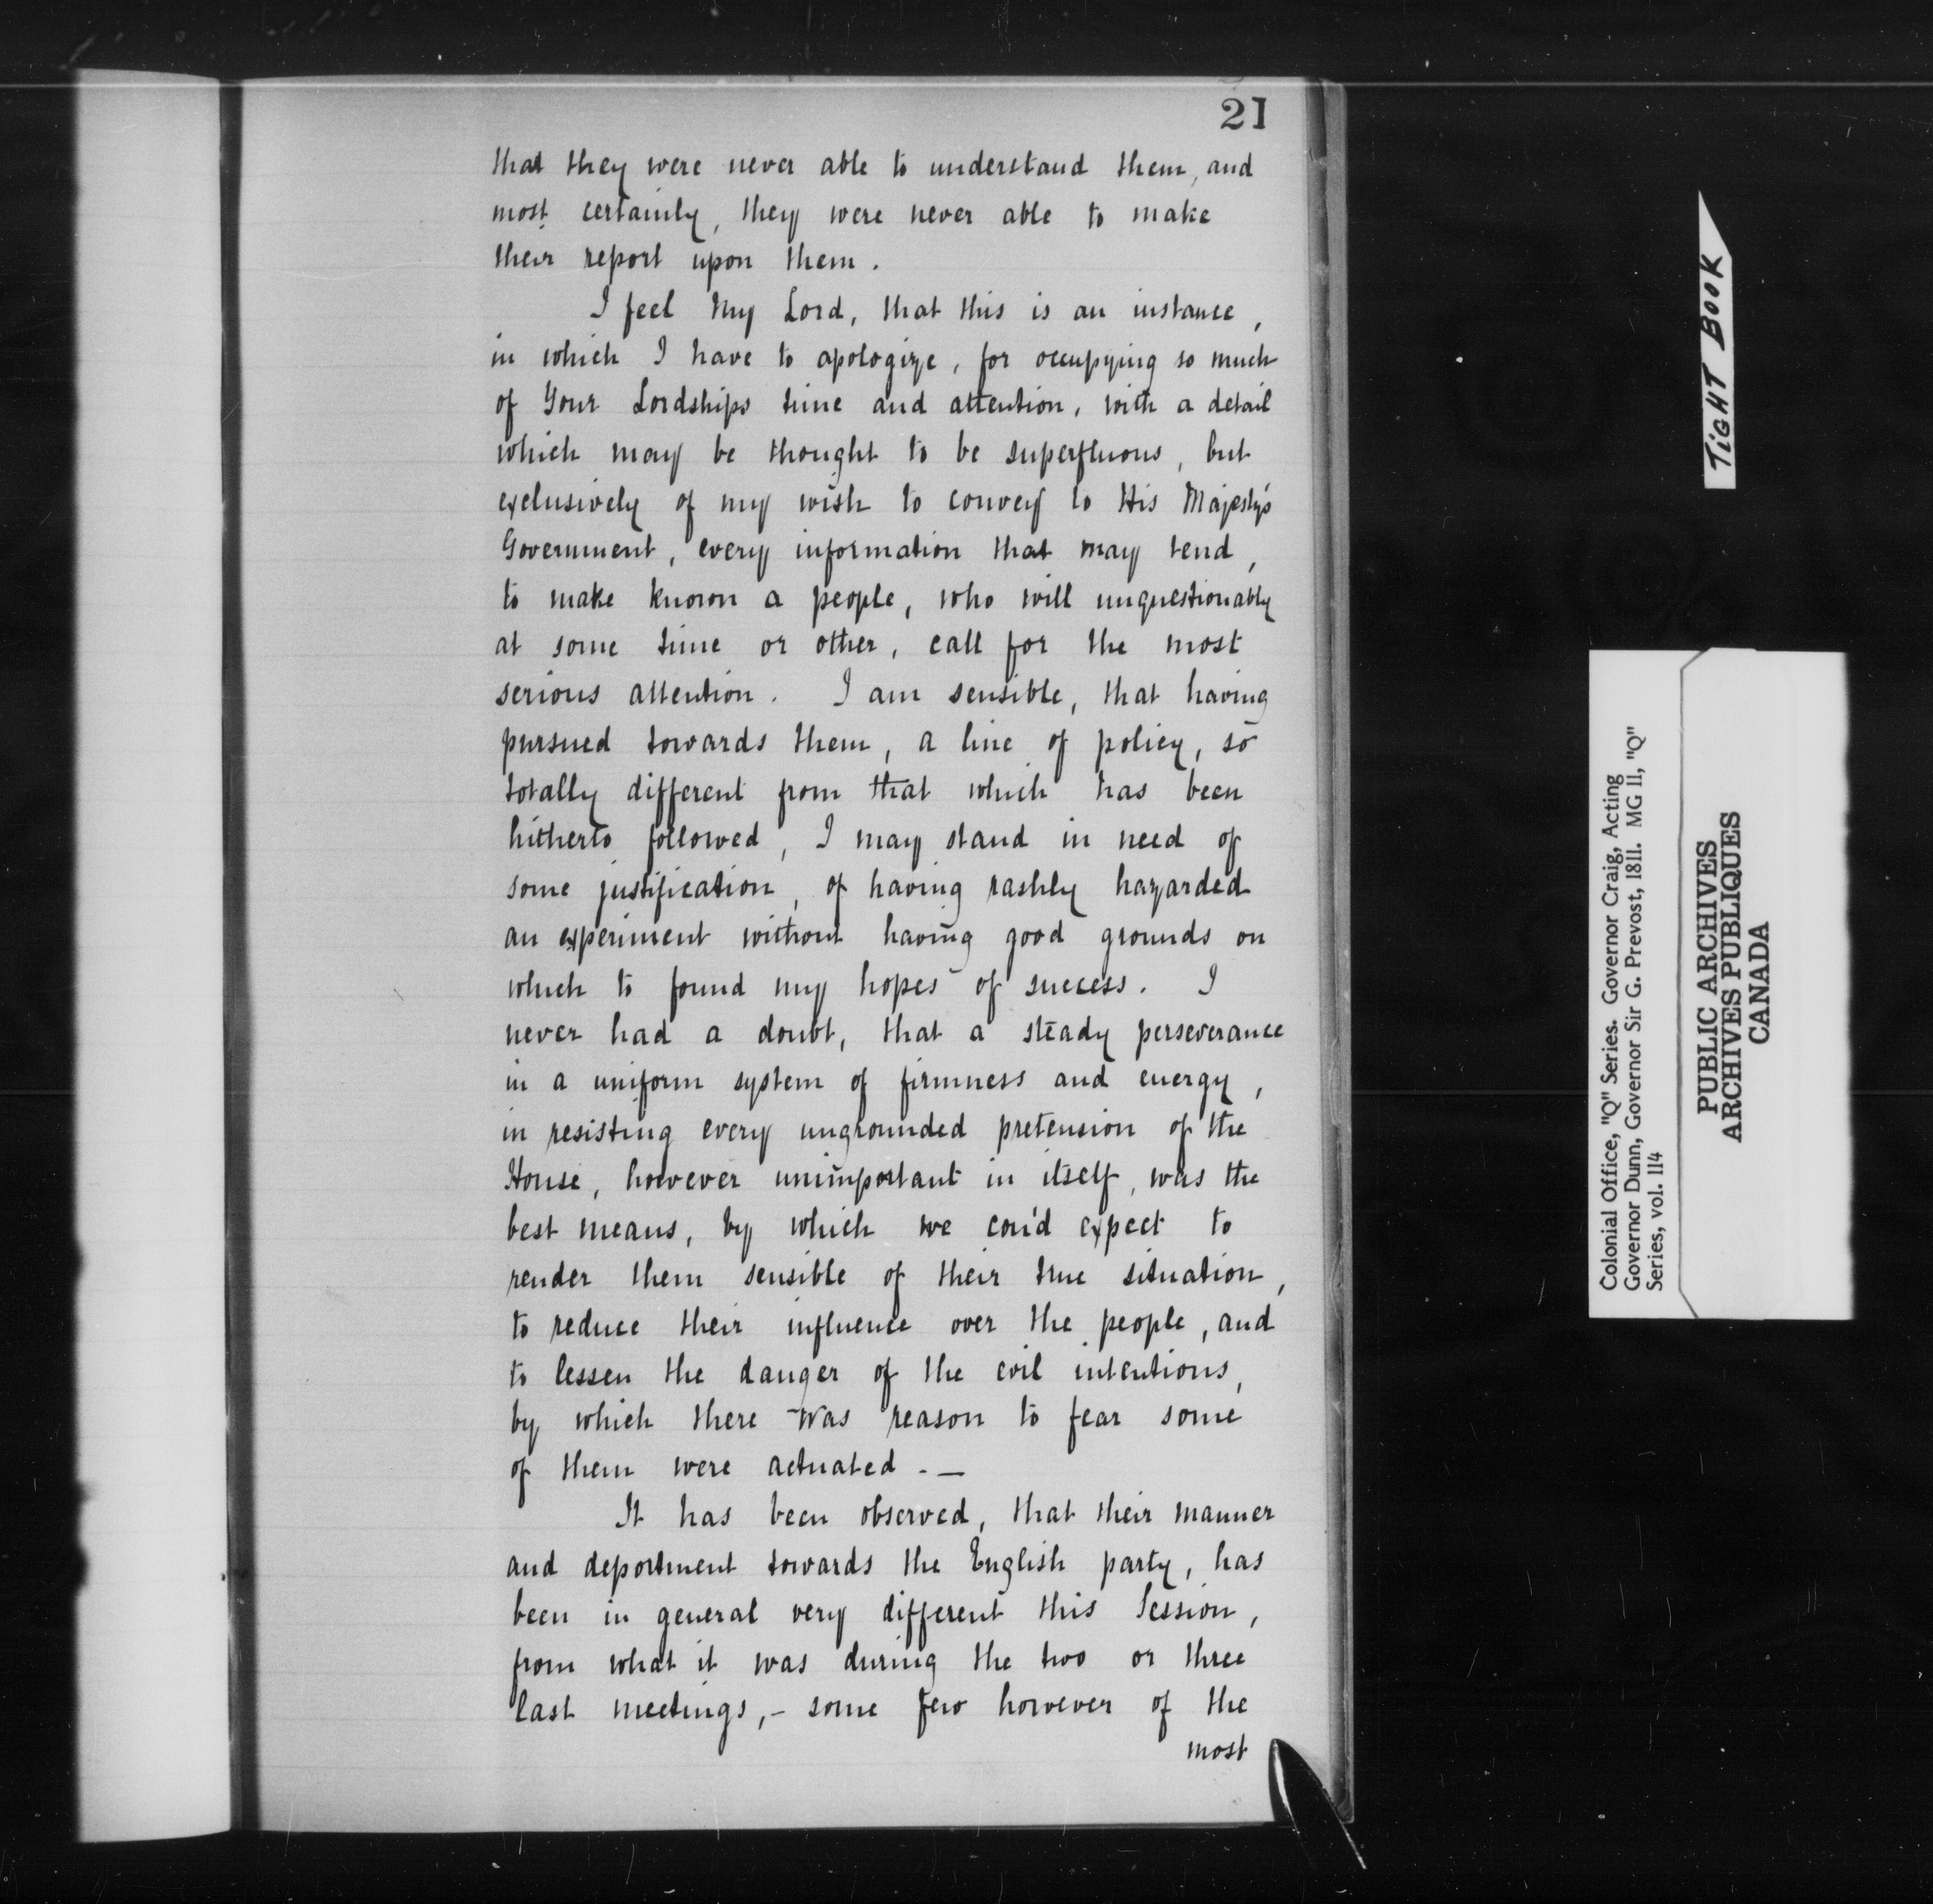 21
that they were never able to understand them, and
most certainly, they were never able to make
their report upon them.
I feel My Lord, that this is an instance,
in which I have to apologize, for occupying so much
of Your Lordships time and attention, with a detail
which may be thought to be superfluous, but
exclusively of my wish to convey to His Majesty's
Government, every information that may tend,
to make known a people, who will unquestionably
at some time or other, call for the most
serious attention. I am sensible, that having
pursued towards them, a line of policy, so
totally different from that which has been
hitherto followed, I may stand in need of
some justification, of having rashly hazarded
an experiment without having good grounds on
which to found my hopes of success. I
never had a doubt, that a steady perseverance
in a uniform system of firmness and energy,
in resisting every ungrounded pretension of the
House, however unimportant in itself, was the
best means, by which we cou'd expect to
render them sensible of their true situation,
to reduce their influence over the people, and
to lessen the danger of the evil intentions,
by which there was reason to fear some
of them were actuated. —
It has been observed, that their manner
and deportment towards the English party, has
been in general very different this Session,
from what it was during the two or three
last meetings, - some few however of the
most
TIGHT BOOK
Colonial Office, "Q" Series. Governor Craig, Acting
Governor Dunn, Governor Sir G. Prevost, 1811. MG 11, "Q"
Series, vol. 114
PUBLIC ARCHIVES
ARCHIVES PUBLIQUES
CANADA